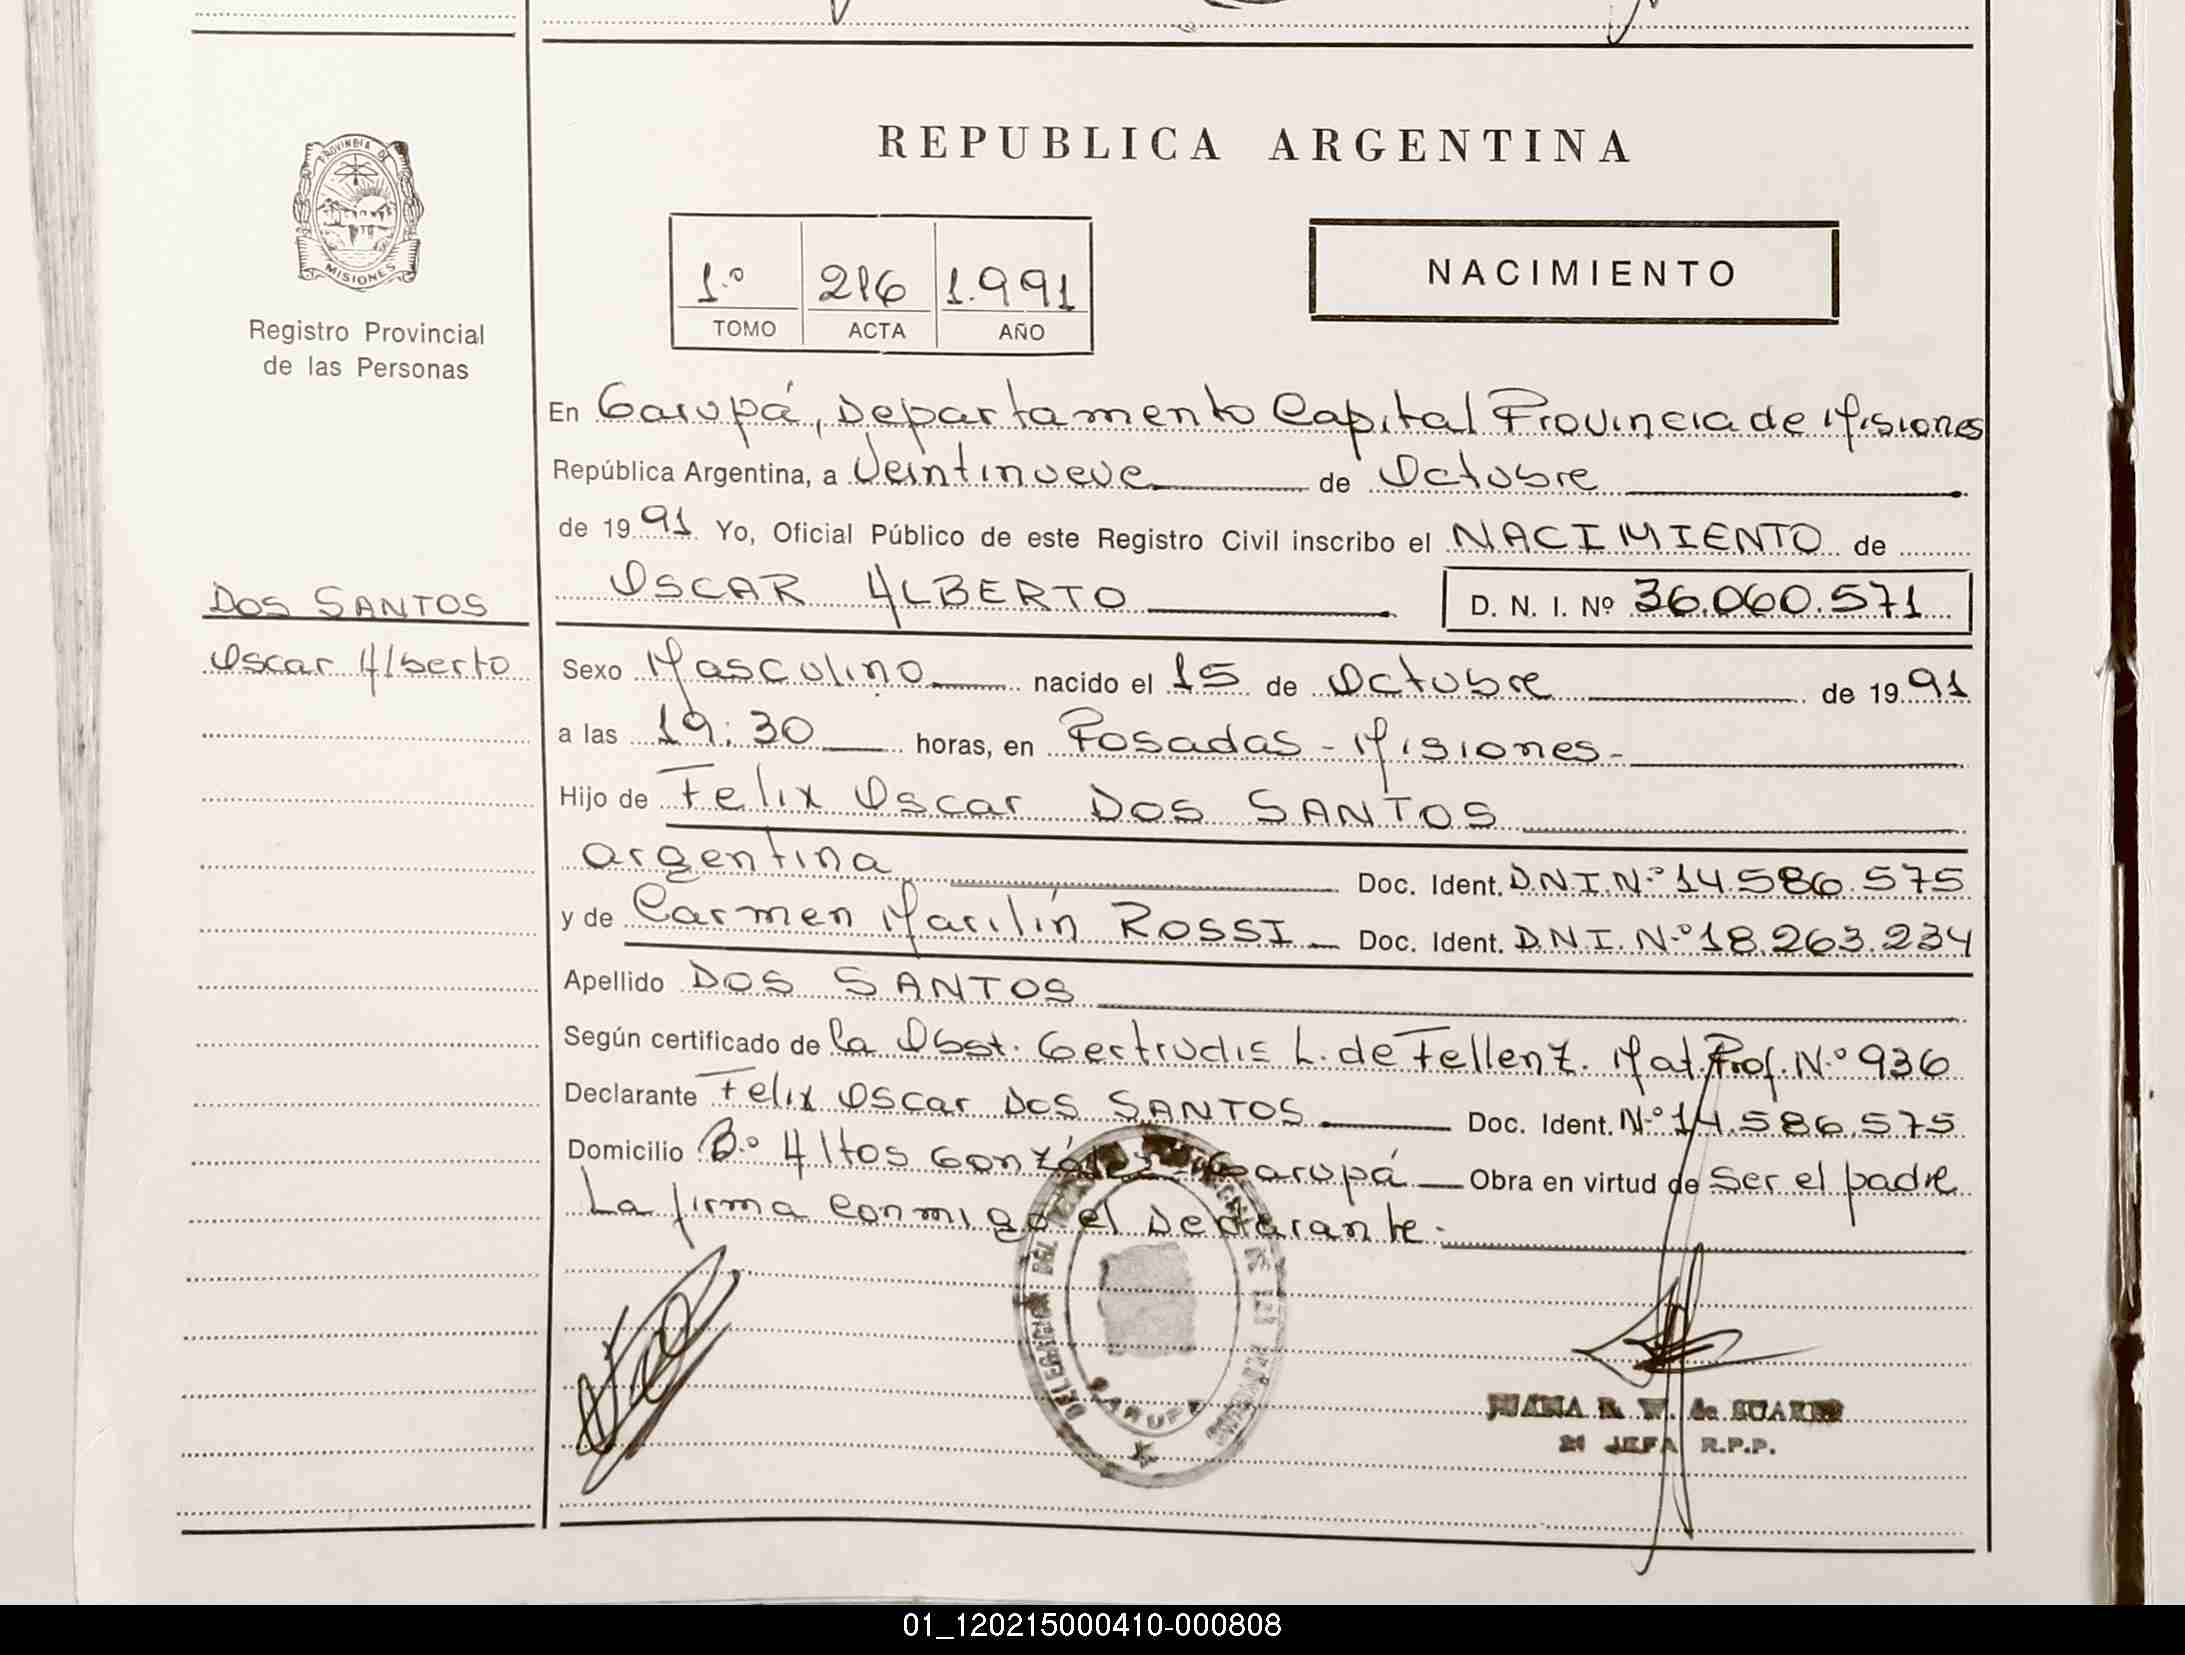 PROVINCIA DE
MISIONES
Registro Provincial
de las Personas
DOS SANTOS
Oscar Alberto
REPUBLICA ARGENTINA
1.º 216 1.991
TOMO ACTA AÑO
NACIMIENTO
En Garupá, Departamento Capital Provincia de Misiones
República Argentina, a Veintinueve de Octubre
de 1991 Yo, Oficial Público de este Registro Civil inscribo el NACIMIENTO de
OSCAR ALBERTO D. N. I. Nº 36.060.571
Sexo Masculino nacido el 15 de Octubre de 1991
a las 19:30 horas, en Posadas - Misiones-
Hijo de Felix Oscar DOS SANTOS
argentina Doc. Ident. D.N.I.N.º 14.586.575
y de Carmen Marilín ROSSI Doc. Ident. D.N.I. N.º 18.263.234
Apellido DOS SANTOS
Según certificado de la Obst. Gertrudis L. de Fellenz. Mat. Prof. N.º 936
Declarante Felix Oscar DOS SANTOS Doc. Ident. N.º 14.586.575
Domicilio B.º Altos González - Garupá Obra en virtud de Ser el padre
La firma conmigo el Declarante.
DELEGACION DEL
DE LAS PERSONAS
GARUPA
JUANA R. W. de SUAREZ
JEFA R.P.P.
01_120215000410-000808